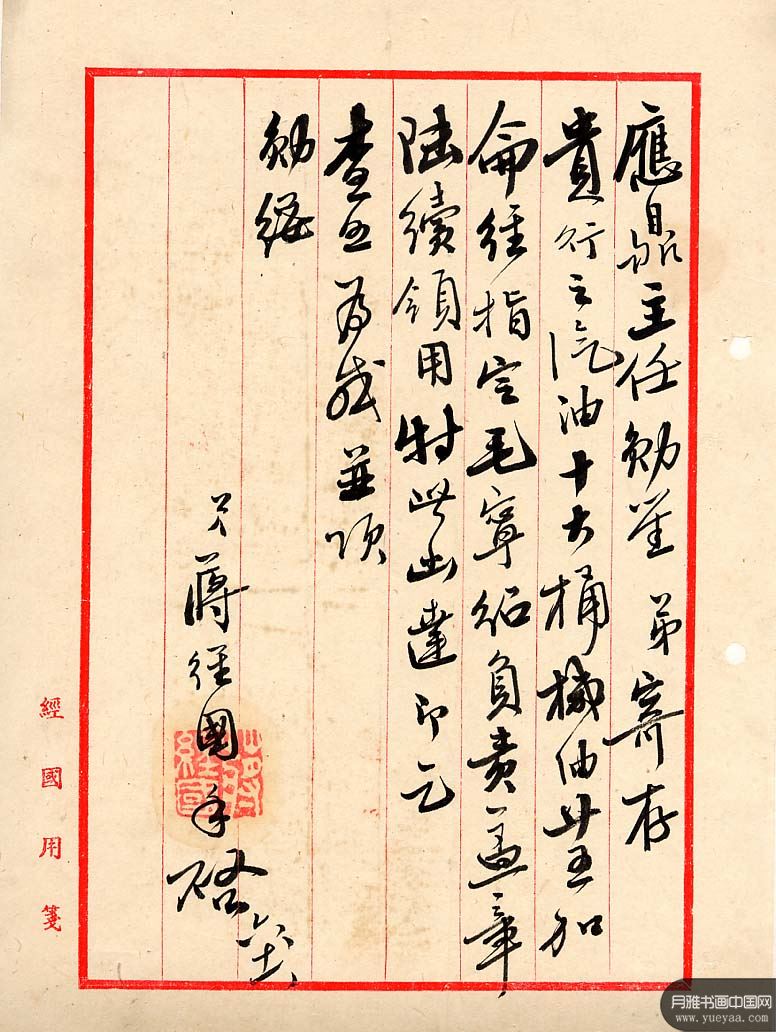 應鼎主任勛鑒 弟寄存
貴行之汽油十大桶機油廿五加
侖經指定毛寧紹負責蓋章
陸續領用特此出達即乞
查照為感並頌
勛綏
弟蔣經國手啓
經國用箋
月雅书画中国网
www.yueyaa.com